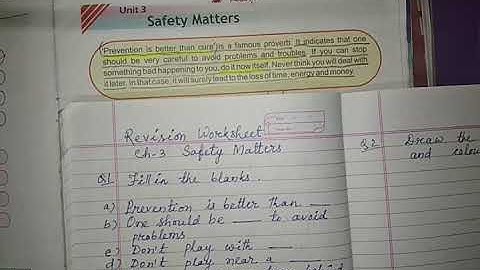 Unit 3
Safety Matters
'Prevention is better than cure' is a famous proverb. It indicates that one
should be very careful to avoid problems and troubles. If you can stop
something bad happening to you, do it now itself. Never think you will deal with
it later. In that case, it will surely lead to the loss of time, energy and money.
Revision Worksheet
Ch-3 Safety Matters
Q1 Fill in the blanks.
a) Prevention is better than ___
b) One should be ___ to avoid
problems
c) Don't play with ___.
d) Don't play near a ___
Q2 Draw the
and colou